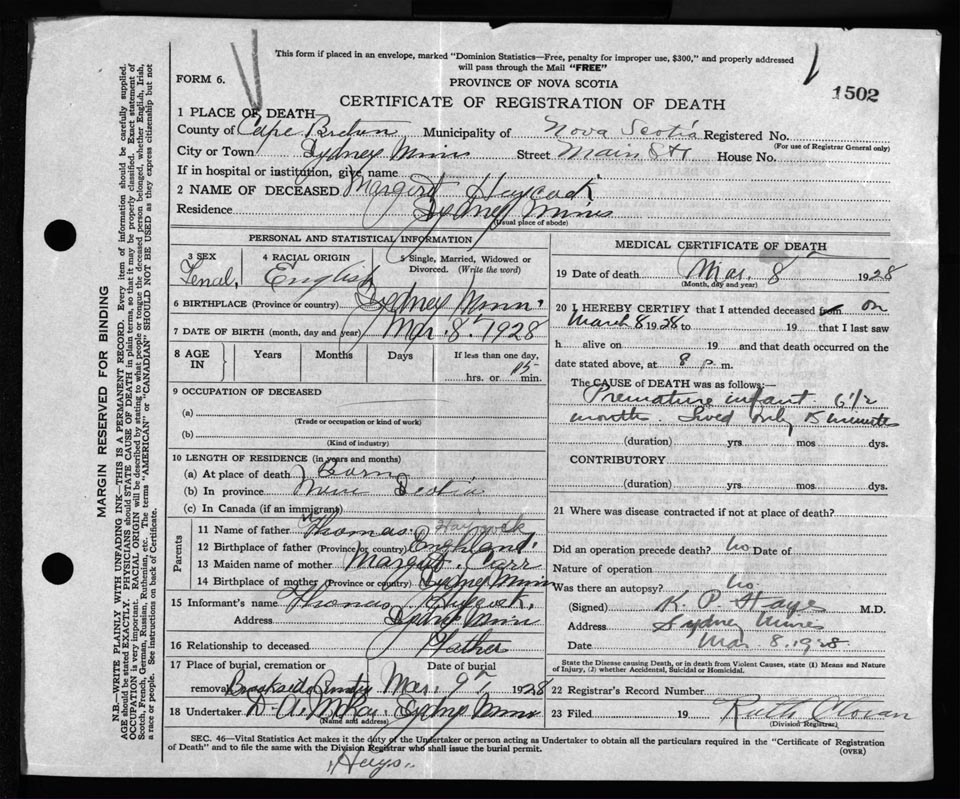 This form if placed in an envelope, marked "Dominion Statistics—Free, penalty for improper use, $300," and properly addressed
will pass through the Mail "FREE"
FORM 6.
PROVINCE OF NOVA SCOTIA
CERTIFICATE OF REGISTRATION OF DEATH
1502
1 PLACE OF DEATH—
County of Cape Breton Municipality of Nova Scotia Registered No.
(For use of Registrar General only)
City or Town Sydney Mines Street Main St House No.
If in hospital or institution, give name
2 NAME OF DECEASED Margret Haycock
Residence Sydney Mines
(Usual place of abode)
PERSONAL AND STATISTICAL INFORMATION
3 SEX 4 RACIAL ORIGIN 5 Single, Married, Widowed or
Divorced. (Write the word)
Femal, English
6 BIRTHPLACE (Province or country) Sydney Mines
7 DATE OF BIRTH (month, day and year) Mar. 8th 1928
8 AGE IN Years Months Days If less than one day,
hrs. or 15 min.
9 OCCUPATION OF DECEASED
(a)
(Trade or occupation or kind of work)
(b)
(Kind of industry)
10 LENGTH OF RESIDENCE (in years and months)
(a) At place of death Born
(b) In province Scotia
(c) In Canada (if an immigrant)
Parents
11 Name of father Thomas Haycock
12 Birthplace of father (Province or country) England
13 Maiden name of mother Margret Carr
14 Birthplace of mother (Province or country) Sydney Mines
15 Informant's name Thomas Haycock,
Address Sydney Mines
16 Relationship to deceased Father
17 Place of burial, cremation or Date of burial
removal Brookside Mar. 9th, 1928
18 Undertaker D. A. McKay Sydney Mines
(Name and address)
MEDICAL CERTIFICATE OF DEATH
19 Date of death Mar. 8th 1928
(Month, day and year)
20 I HEREBY CERTIFY that I attended deceased from on
March 8 1928 to 19 that I last saw
h alive on 19 and that death occurred on the
date stated above, at 8 p. m.
The CAUSE of DEATH was as follows:—
Premature infant 6 1/2
months. Lived only 15 minutes
(duration) yrs. mos. dys.
CONTRIBUTORY
(duration) yrs. mos. dys.
21 Where was disease contracted if not at place of death?
Did an operation precede death? no Date of
Nature of operation
Was there an autopsy? no.
(Signed) K. P. Haye M.D.
Address Sydney Mines
Date Mar. 8, 1928
State the Disease causing Death, or in death from Violent Causes, state (1) Means and Nature
of Injury, (2) whether Accidental, Suicidal or Homicidal.
22 Registrar's Record Number
23 Filed 19 Ruth Cloran
(Division Registrar)
SEC. 46—Vital Statistics Act makes it the duty of the Undertaker or person acting as Undertaker to obtain all the particulars required in the "Certificate of Registration
of Death" and to file the same with the Division Registrar who shall issue the burial permit.
(OVER)
"Hays"
MARGIN RESERVED FOR BINDING
N.B.—WRITE PLAINLY WITH UNFADING INK—THIS IS A PERMANENT RECORD. Every item of information should be carefully supplied.
AGE should be stated EXACTLY. PHYSICIANS should STATE CAUSE OF DEATH in plain terms, so that it may be properly classified. Exact statement of
OCCUPATION is very important. RACIAL ORIGIN will be described by stating to what people or tongue the deceased person belonged, whether English, Irish,
Scotch, French, German, Russian, Ruthenian, etc. The terms "AMERICAN" or "CANADIAN" SHOULD NOT BE USED as they express citizenship but not
a race or people. See instructions on back of Certificate.